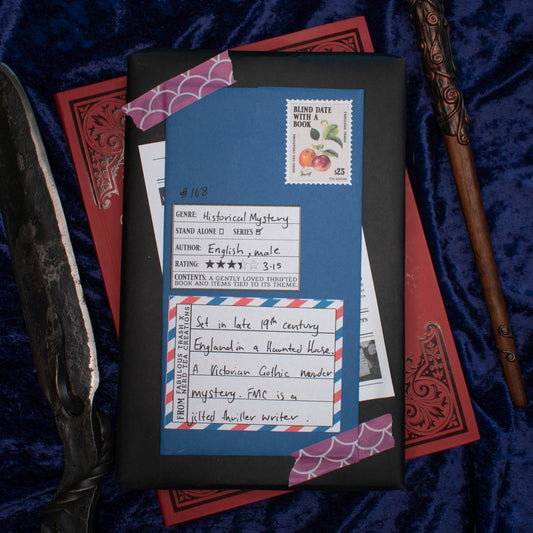 BLIND DATE
WITH A
BOOK
$25
#168
GENRE: Historical Mystery
STAND ALONE ☐ SERIES ☑
AUTHOR: English, male
RATING: ★★★ 3.15
CONTENTS: A GENTLY LOVED THRIFTED
BOOK AND ITEMS TIED TO ITS THEME.
FROM FABULOUS TRASH X
NERD TEA CREATIONS
Set in late 19th century
England in a Haunted House.
A Victorian Gothic murder
mystery. FMC is a
jilted thriller writer.